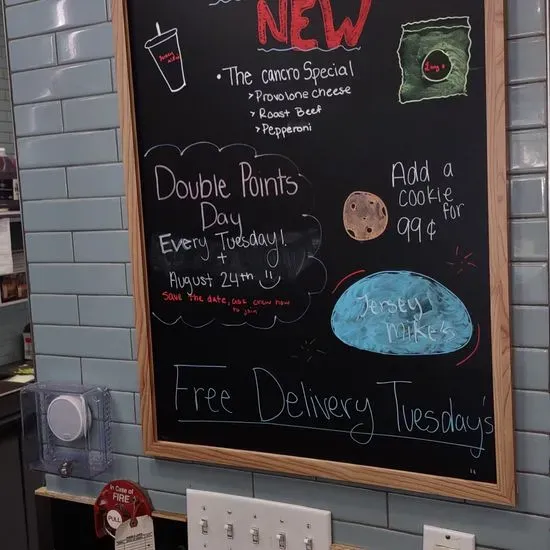 NEW
• The cancro Special
> Provolone cheese
> Roast Beef
> Pepperoni
Double Points
Day
Every Tuesday!
+
August 24th
Save the date, ask crew how
to join
Add a
cookie
for
99¢
Jersey
Mike's
Free Delivery Tuesday's
In Case of
FIRE
PULL